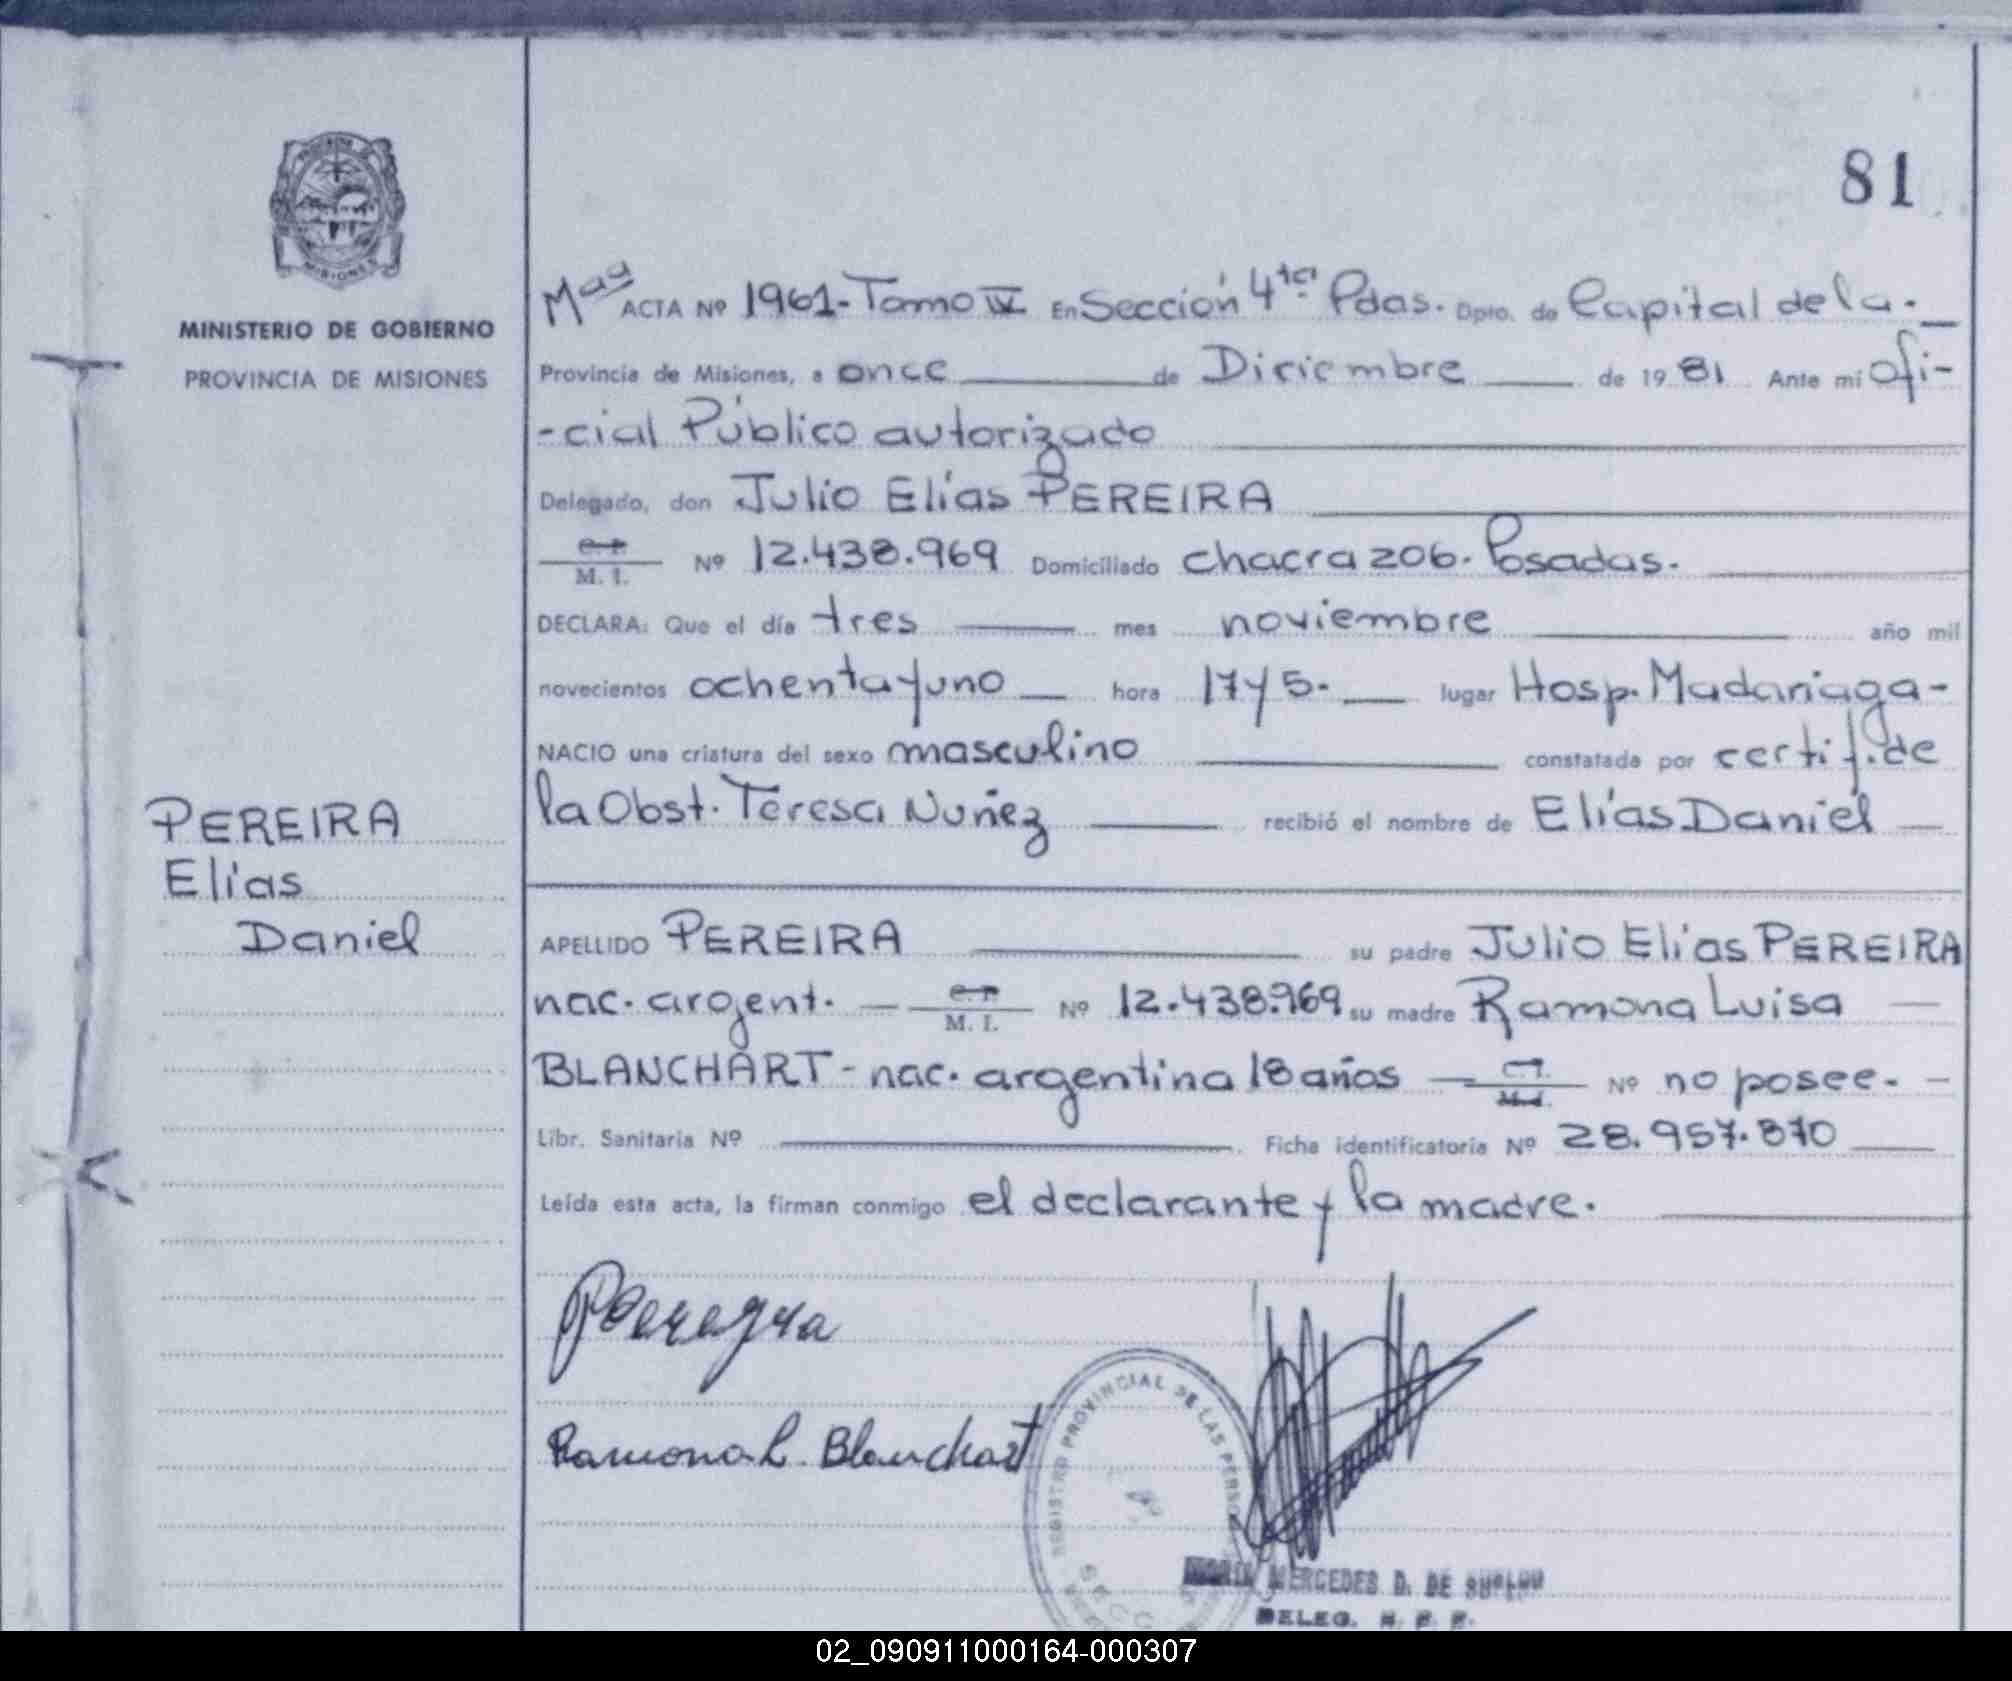 81
MISIONES
MINISTERIO DE GOBIERNO
PROVINCIA DE MISIONES
PEREIRA
Elías
Daniel
ACTA Nº 1961-Tomo IV En Sección 4ta Pdas. Dpto. de Capital de la.
Provincia de Misiones, a once de Diciembre de 1981 Ante mí Ofi-
-cial Público autorizado
Delegado, don Julio Elías PEREIRA
M. I. Nº 12.438.969 Domiciliado chacra 206. Posadas.
DECLARA: Que el día tres mes noviembre año mil
novecientos ochenta y uno hora 17 y 5. lugar Hosp. Madariaga-
NACIO una criatura del sexo masculino constatada por certif. de
la Obst. Teresa Nuñez recibió el nombre de Elías Daniel
APELLIDO PEREIRA su padre Julio Elías PEREIRA
nac. argent. M. I. Nº 12.438.969 su madre Ramona Luisa
BLANCHART - nac. argentina 18 años Nº no posee.
Libr. Sanitaria Nº Ficha identificatoria Nº 28.957.870
Leída esta acta, la firman conmigo el declarante y la madre.
Ramona L. Blanchart
REGISTRO PROVINCIAL DE LAS PERSO
MERCEDES D. DE
DELEG.
02_090911000164-000307